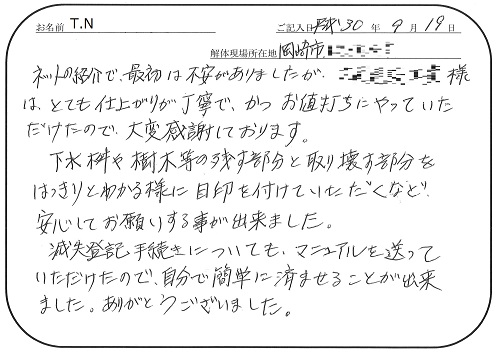 お名前 T.N ご記入日 平成30年 9月 19日
解体現場所在地 岡崎市
ネットの紹介で、最初は不安がありましたが、 様
は、とても仕上がりが丁寧で、かつ お値打ちにやっていた
だけたので、大変感謝しております。
下水桝や樹木等の残す部分と取り壊す部分を
はっきりとわかる様に目印を付けていただくなど、
安心してお願いする事が出来ました。
滅失登記手続きについても、マニュアルを送って
いただけたので、自分で簡単に済ませることが出来
ました。ありがとうございました。